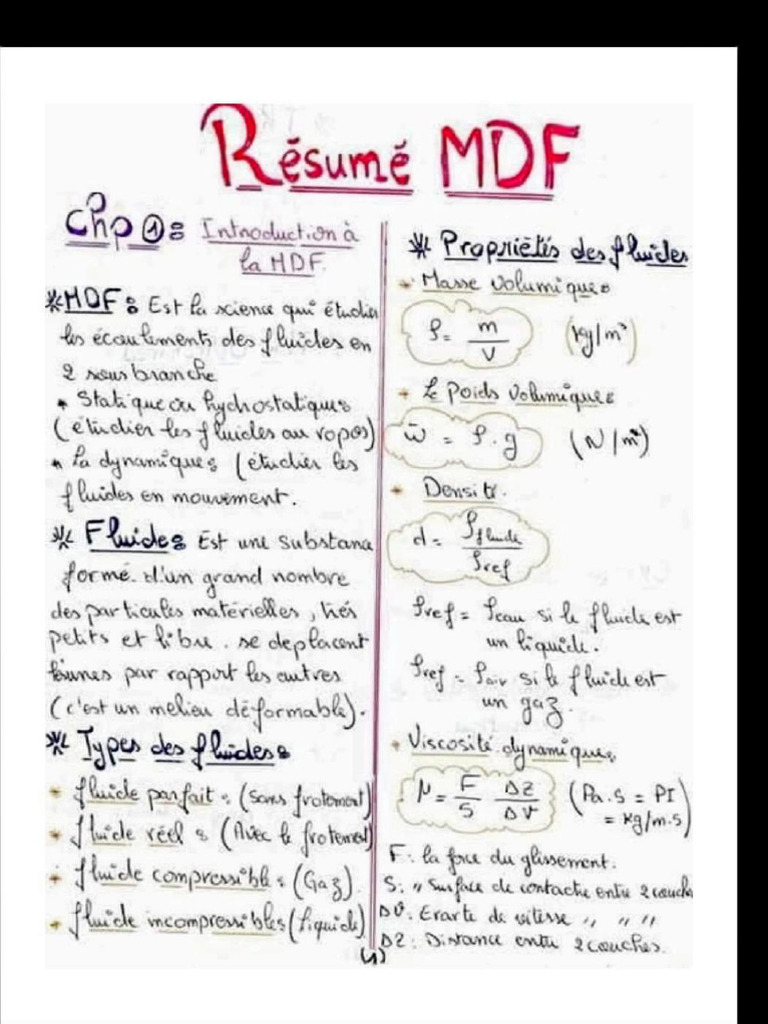 Résumé MDF
Chp 1: Introduction à
la MDF.
*MDF: Est la science qui étudier
les écoulements des fluides en
2 sous branche
* Statique ou hydrostatique
(étudier les fluides au ropos)
* La dynamique: (étudier les
fluides en mouvement.
* Fluide: Est une substance
formé d'un grand nombre
des particules matérielles, trés
petits et libre. se deplacent
les unes par rapport les autres
(c'est un melieu déformable).
* Types des fluides:
+ fluide parfait: (sans frotement)
+ fluide réel: (Avec le frotement)
+ fluide compressible: (Gaz).
+ fluide incompressibles (liquide)
* Propriétés des fluides
+ Masse volumique:
ρ = m/V (kg/m³)
+ Le Poids volumique:
ω̄ = ρ.g (N/m³)
+ Densité.
d = ρfluide/ρref
ρref = ρeau si le fluide est
un liquide.
ρref = ρair si le fluide est
un gaz.
+ Viscosité dynamique,
μ = F/S ΔZ/ΔV (Pa.S = PI)
= kg/m.s)
F: la force du glissement.
S: " surface de contacte entre 2 couche
ΔV: Erarte de vitesse " " "
ΔZ: Distance entre 2 couches.
(1)